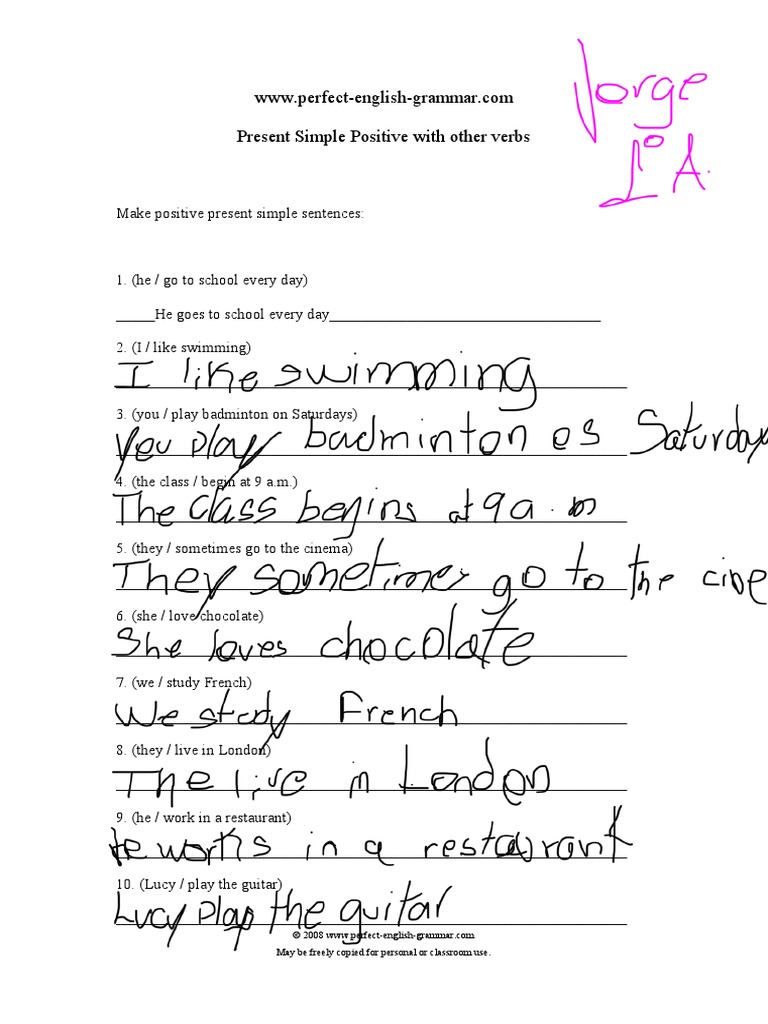 www.perfect-english-grammar.com
Jorge
Present Simple Positive with other verbs
1º A.
Make positive present simple sentences:
1. (he / go to school every day)
_____He goes to school every day___________________________________
2. (I / like swimming)
I like swimming
3. (you / play badminton on Saturdays)
You play badminton os Saturday
4. (the class / begin at 9 a.m.)
The class begins at 9 a.m
5. (they / sometimes go to the cinema)
They sometimes go to the cine
6. (she / love chocolate)
She loves chocolate
7. (we / study French)
We study French
8. (they / live in London)
The live in London
9. (he / work in a restaurant)
He works in a restaurant
10. (Lucy / play the guitar)
Lucy the guitar
© 2008 www.perfect-english-grammar.com
May be freely copied for personal or classroom use.